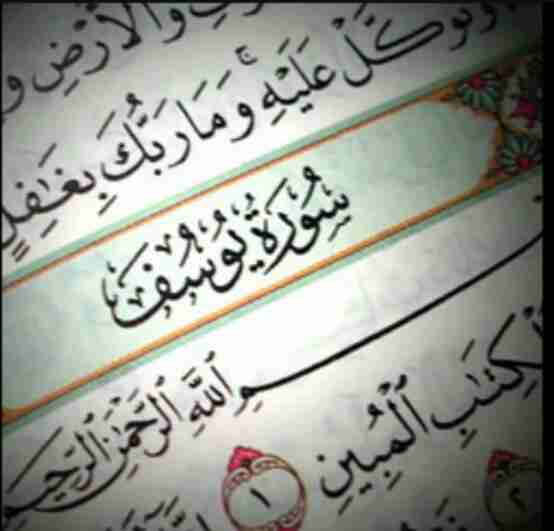 وَالْأَرْضِ و
وَتَوَكَّلْ عَلَيْهِ ۚ وَمَا رَبُّكَ بِغَافِلٍ
سُورَةُ يُوسُفَ
بِسْمِ اللَّهِ الرَّحْمَٰنِ الرَّحِيمِ
الْكِتَابِ الْمُبِينِ ١ ٢